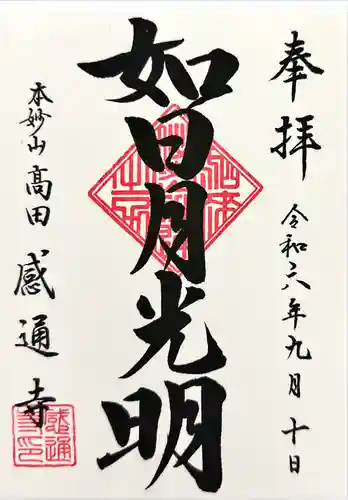 奉拝
令和六年九月十日
如日月光明
本妙山高田感通寺
感通
寺印